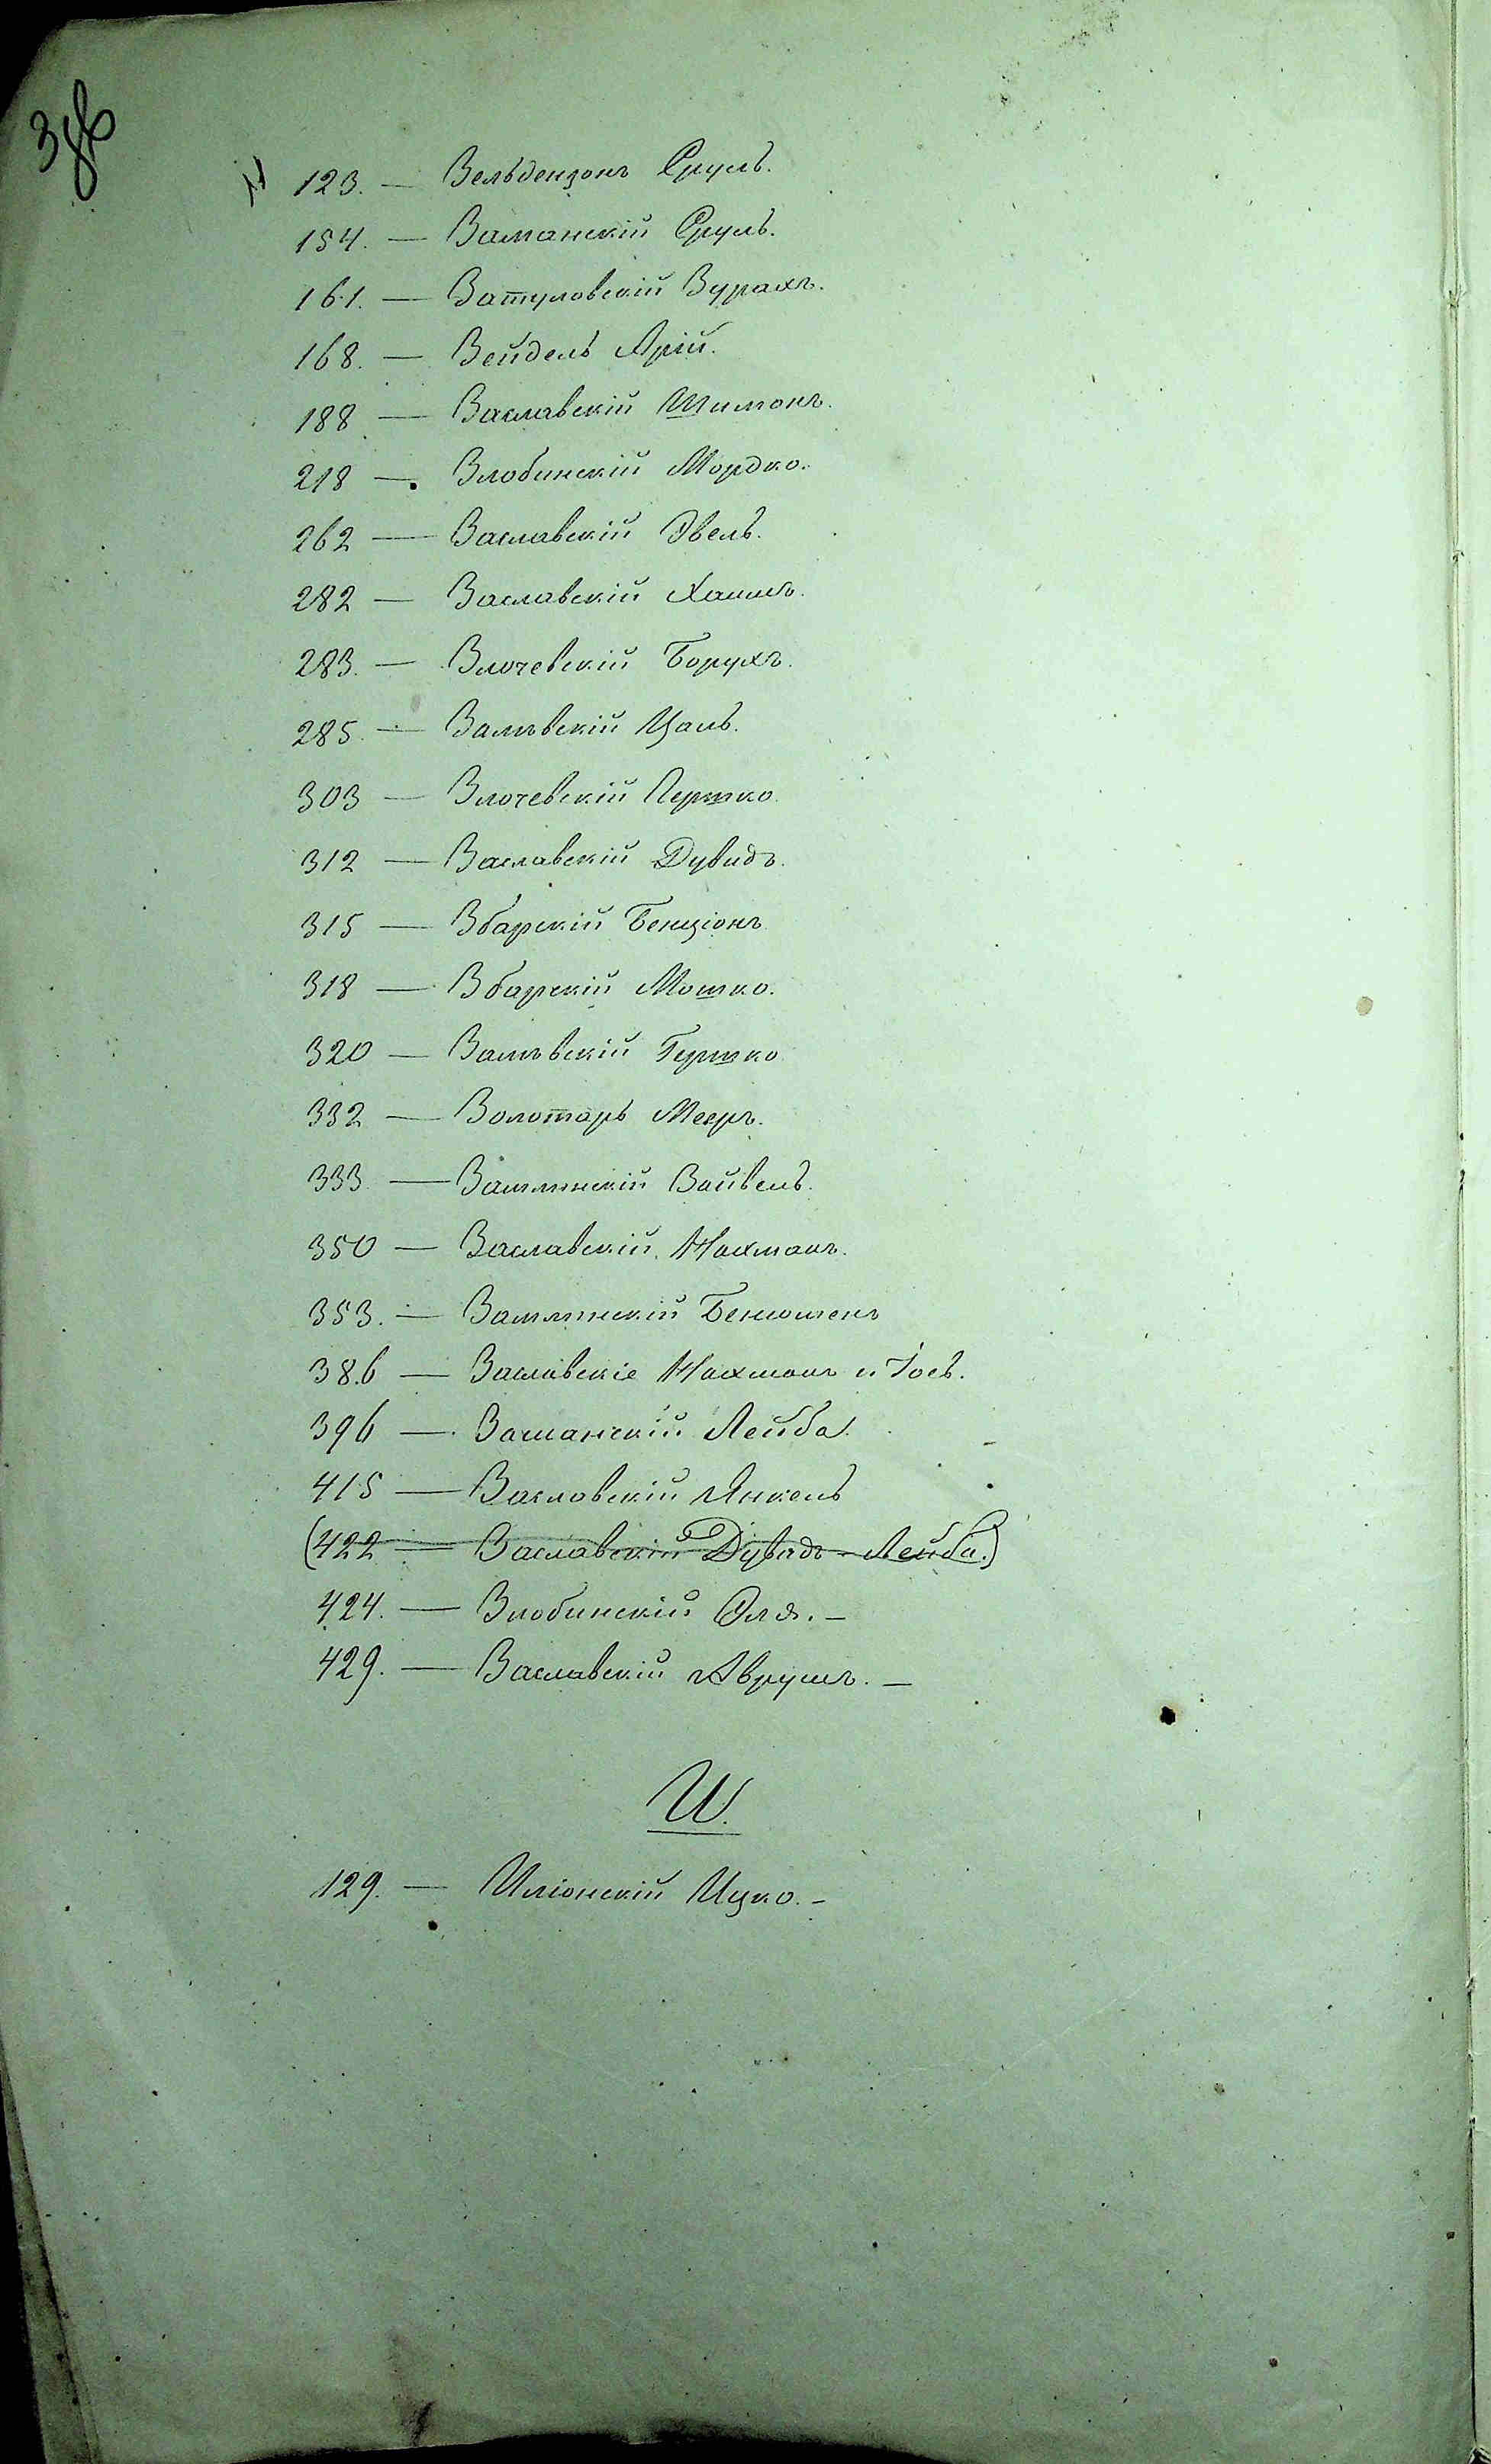 123. — Зельдензонъ Сруль.
154. — Заманскій Сруль.
161. — Затуловскій Зурахъ.
168. — Зейдель Арій.
188 — Заславскій Шимонъ.
218 — Злобинскій Мордко.
262 — Заславскій Эвель.
282 — Заславскій Хаимъ.
283. — Злочевскій Борухъ.
285. — Залѣвскій Цаль.
303 — Злочевскій Гершко.
312 — Заславскій Дувидъ.
315 — Збарскій Бенціонъ
318 — Збарскій Мошко.
320 — Залѣвскій Гершко
332 — Золотарь Мееръ.
333 — Зайвель.
350 — Заславскій Нахманъ.
353. —
386 — Заславскіе Нахманъ и Іось.
396 — Заманскій Лейба.
415 — Заславскій Янкель
(422 — Заславскій Дувидъ-Лейба.)
424. — Злобинскій Эля. —
429. — Заславскій Аврумъ. —
И.
129. — Иліонскій Ицко. —